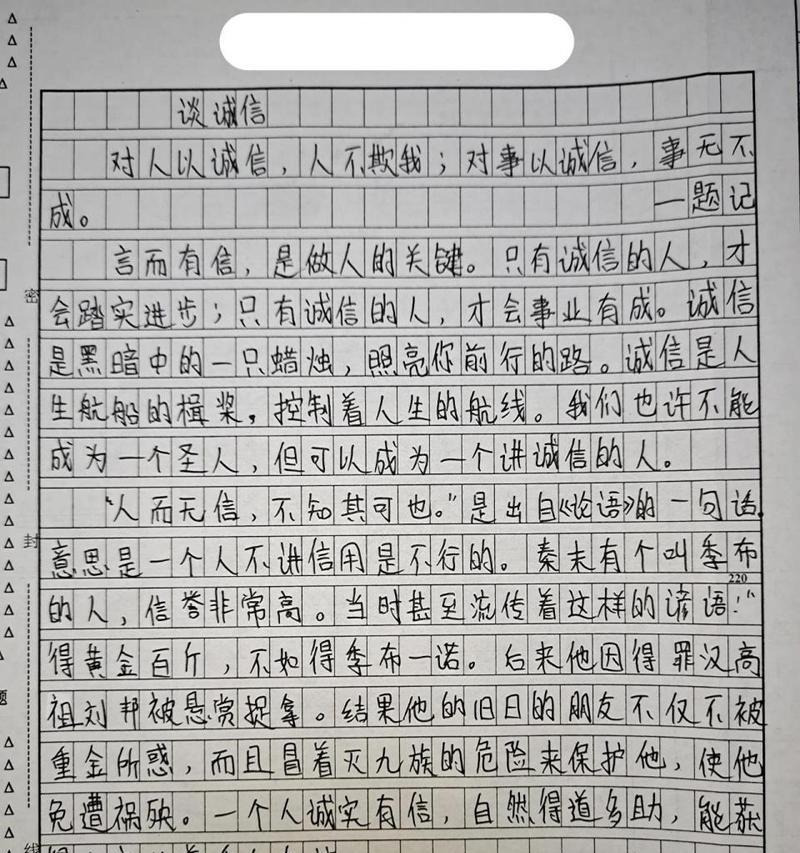 谈诚信
对人以诚信，人不欺我；对事以诚信，事无不
成。 —题记
言而有信，是做人的关键。只有诚信的人，才
密
会踏实进步；只有诚信的人，才会事业有成。诚信
是黑暗中的一只蜡烛，照亮你前行的路。诚信是人
生航船的楫桨，控制着人生的航线。我们也许不能
成为一个圣人，但可以成为一个讲诚信的人。
“人而无信，不知其可也。”是出自《论语》的一句话，
封
意思是一个人不讲信用是不行的。秦末有个叫季布
220
的人，信誉非常高。当时甚至流传着这样的谚语：“
得黄金百斤，不如得季布一诺。后来他因得罪汉高
题
祖刘邦被悬赏捉拿。结果他的旧日的朋友不仅不被
重金所惑，而且冒着灭九族的危险来保护他，使他
免遭祸殃。一个人诚实有信，自然得道多助，能获
线